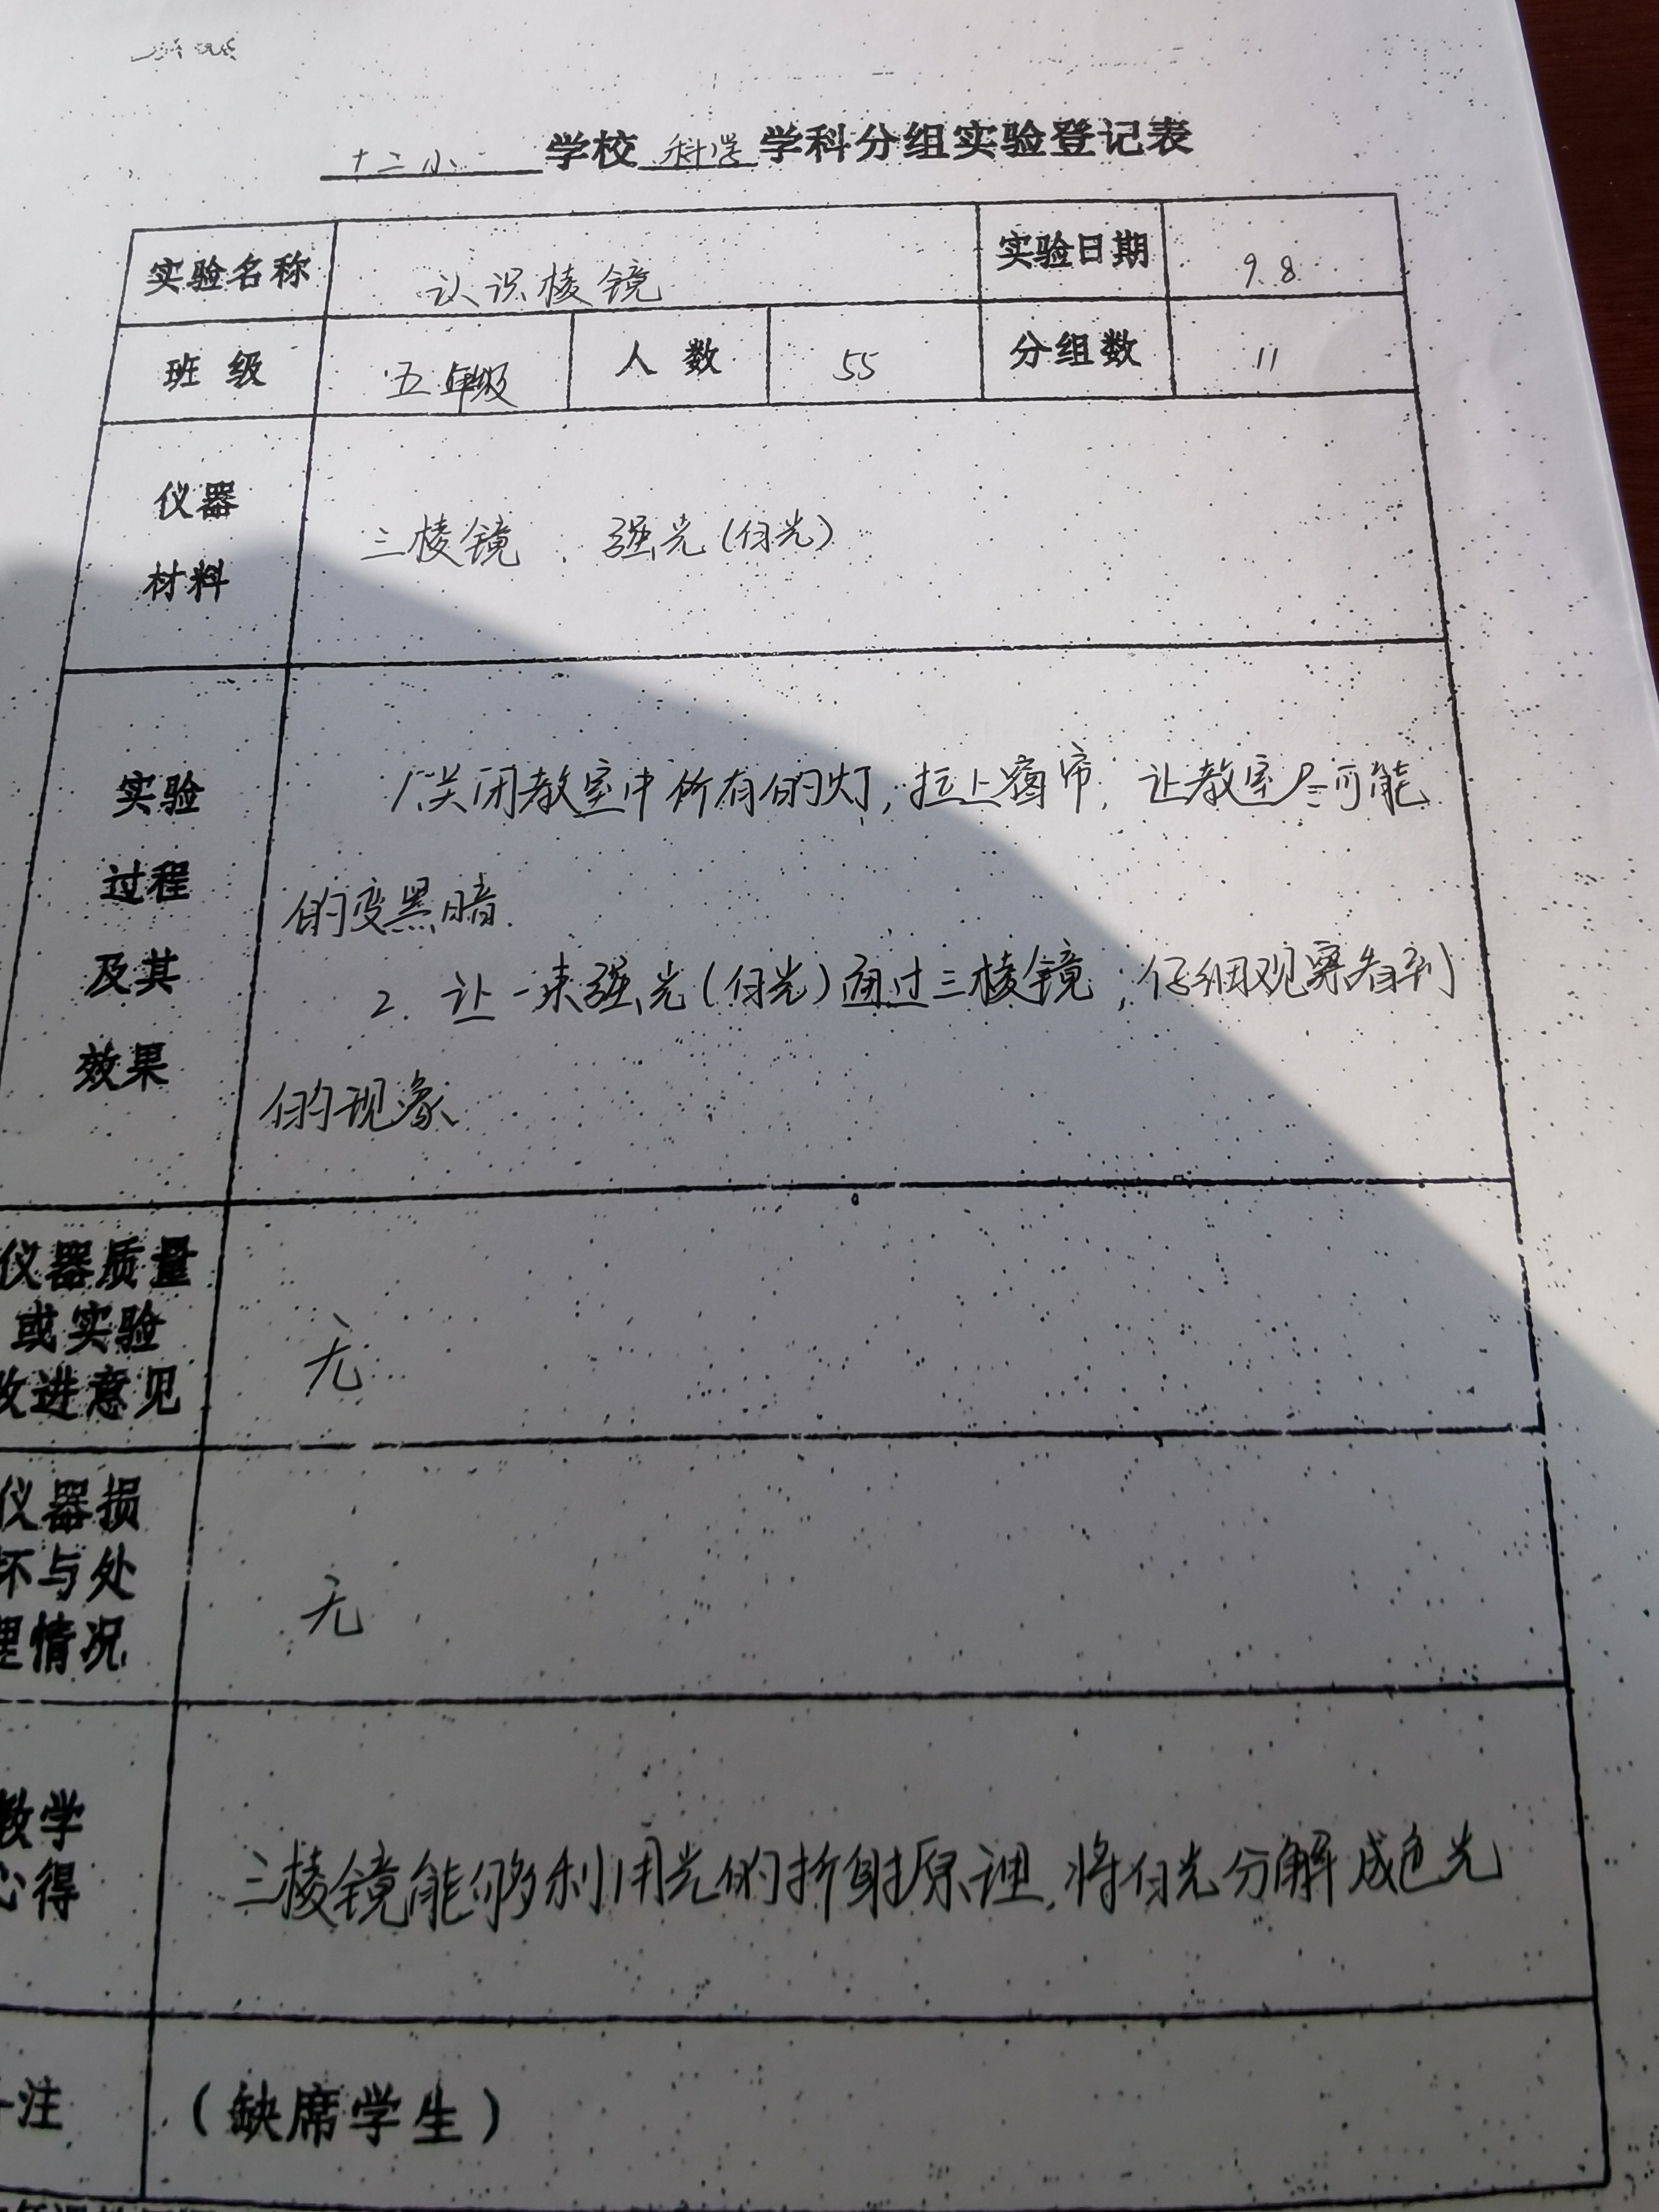 十二小 学校 科学 学科分组实验登记表
实验名称 认识棱镜 实验日期 9.8
班 级 五年级 人 数 55 分组数 11
仪器
材料
三棱镜、强光(白光)
实验
过程
及其
效果
1.关闭教室中所有的灯,拉上窗帘,让教室尽可能
的变黑暗.
2. 让一束强光(白光)通过三棱镜,仔细观察看到
的现象
仪器质量
或实验
改进意见
无
仪器损
坏与处
理情况
无
教学
心得
三棱镜能够利用光的折射原理,将白光分解成色光
注
(缺席学生)